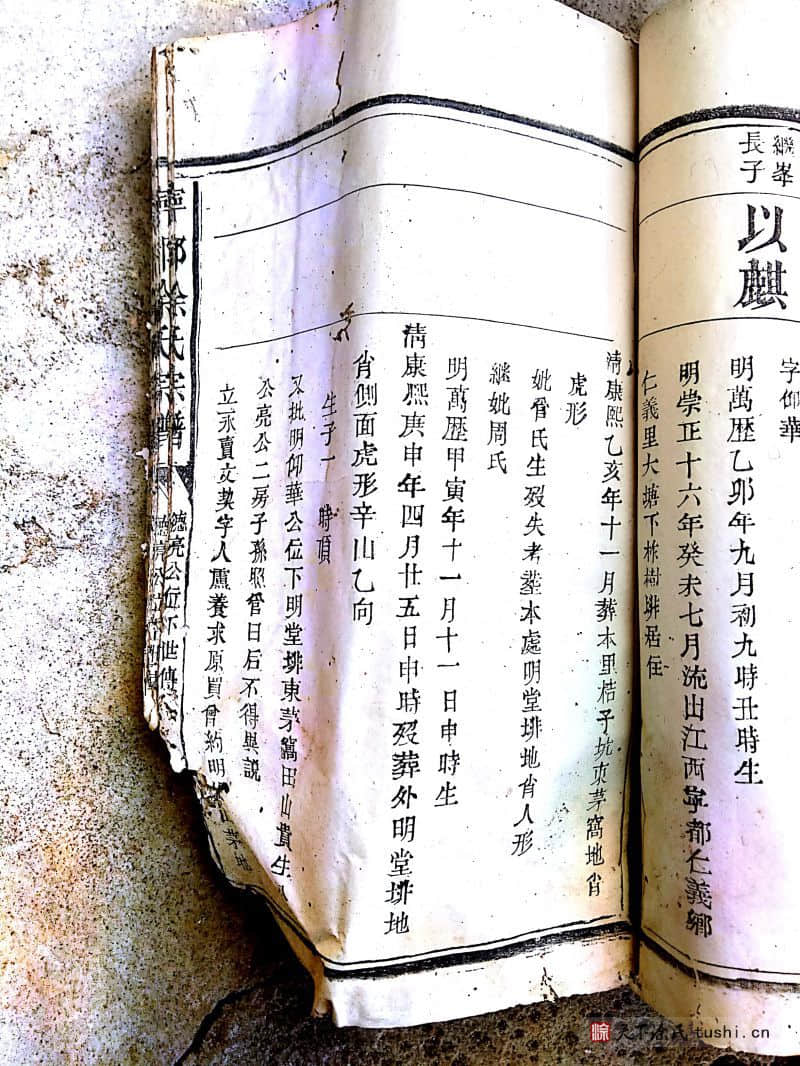 繼峯
長子
以麒
字仰華
明萬歷乙卯年九月初九時丑時生
明崇正十六年癸未七月流出江西寧都仁義鄉
仁義里大塘下柞樹排居住
清康熙乙亥年十一月葬本里桔子坑茅窩地肖
虎形
妣曾氏生歿失考塟本處明堂排地肖人形
繼妣周氏
明萬歷甲寅年十一月十一日申時生
清康熙庚申年四月廿五日申時歿葬外明堂排地
肖側面虎形辛山乙向
生子一 時頂
又批明仰華公位下明堂排東茅窩田山貴生
公亮公二房子孫照管日后不得異説
立永賣文契字人蕭養求原買曾約明
寧都徐氏宗譜
德亮公位下世傳
天下徐氏tushi.cn